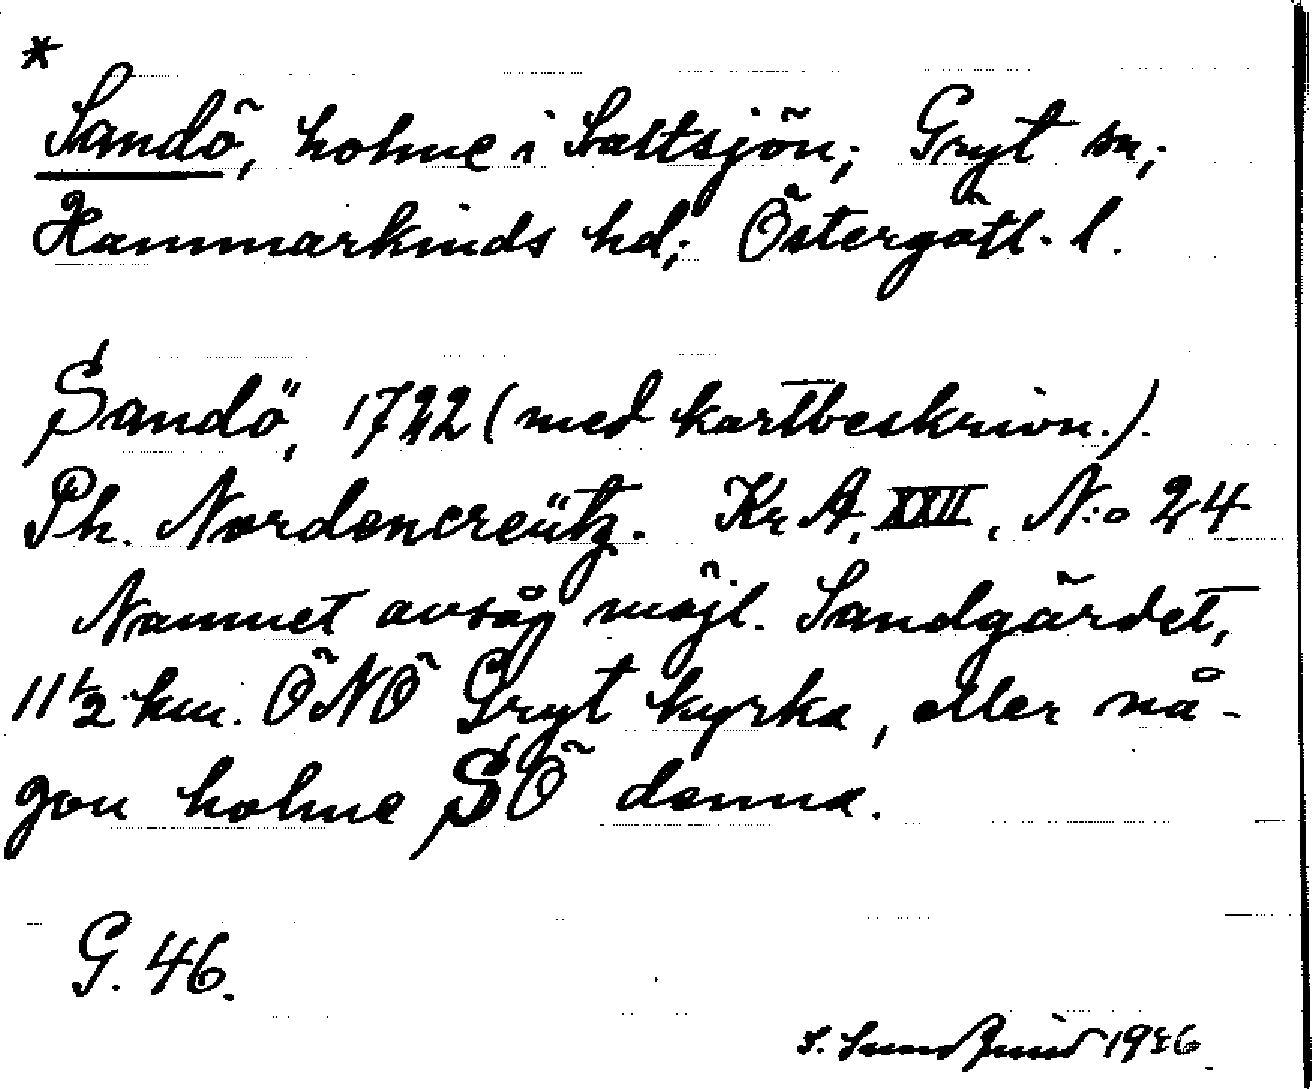 *
Sandö, holme i Saltsjön; Gryt sn;
Hammarkinds hd; Östergötl. l.
Sandö, 1722 (med kartbeskrivn.).
Ph. Nordencreütz. Kr A. XXII, N:o 24
Namnet avsåg möjl. Sandgärdet,
11 1/2 km. ÖNÖ Gryt kyrka, eller nå-
gon holme SÖ denna.
G. 46.
S. 1936